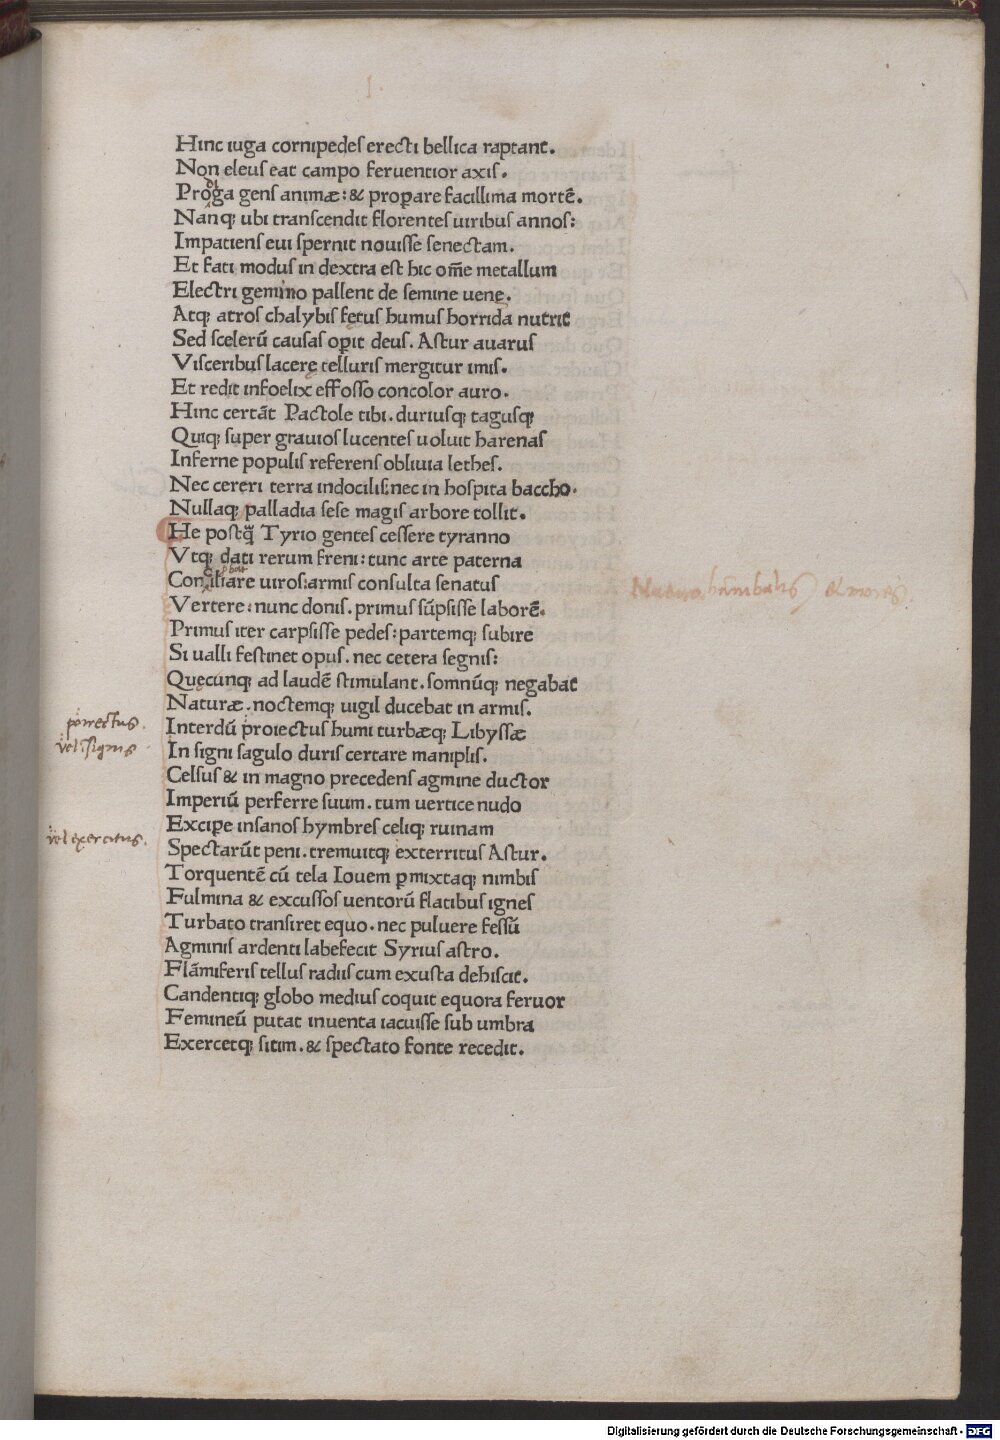 Hinc iuga cornipedeſ erecti bellica raptant.
Non eleuſ eat campo feruentior axiſ.
di
Proga genſ animæ: & ꝓperare facillima mortē.
Nanq; ubi tranſcendit florenteſ uiribuſ annoſ:
Impatienſ eui ſpernit nouiſſe ſenectam.
Et fati moduſ in dextra eſt hic om̄e metallum
Electri gemino pallent de ſemine uenę.
Atq; atroſ chalybiſ fetuſ humuſ horrida nutrit
Sed ſcelerū cauſaſ oꝑit deuſ. Aſtur auaruſ
Viſceribuſ lacerę telluriſ mergitur imiſ.
Et redit infoelix effoſſo concolor auro.
Hinc certāt Pactole tibi. duriuſq; taguſq;
Quiq; ſuper grauioſ lucenteſ uoluit harenaſ
Inferne populiſ referenſ obliuia letheſ.
Nec cereri terra indociliſ: nec in hoſpita baccho.
Nullaq; palladia ſeſe magiſ arbore tollit.
He poſtq̄ Tyrio genteſ ceſſere tyranno
Vtq; dati rerum freni: tunc arte paterna
Conciliare uiroſ: armiſ conſulta ſenatuſ
Vertere: nunc doniſ. primuſ sūpſiſſe laborē.
Primuſ iter carpſiſſe pedeſ: partemq; ſubire
Si ualli feſtinet opuſ. nec cetera ſegniſ:
Quęcunq; ad laudē ſtimulant. ſomnūq; negabat
Naturæ. noctemq; uigil ducebat in armiſ.
Interdū proiectuſ humi turbæq; Libyſſæ
In ſigni ſagulo duriſ certare manipliſ.
Celſuſ & in magno precedenſ agmine ductor
Imperiū perferre ſuum. tum uertice nudo
Exciꝑe inſanoſ hymbreſ celiq; ruinam
Spectarūt peni. tremuitq; exterrituſ Aſtur.
Torquentē cū tela Iouem ꝑmixtaq; nimbiſ
Fulmina & excuſſoſ uentorū flatibuſ igneſ
Turbato tranſiret equo. nec puluere feſſū
Agminiſ ardenti labefecit Syriuſ aſtro.
Flāmiferiſ telluſ radiiſ cum exuſta dehiſcit.
Candentiq; globo mediuſ coquit equora feruor
Femineū putat inuenta iacuiſſe ſub umbra
Exercetq; ſitim. & ſpectato fonte recedit.
Natura hānibalis et mores.
porrectus.
vel exercitus.
Digitalisierung gefördert durch die Deutsche Forschungsgemeinschaft - DFG